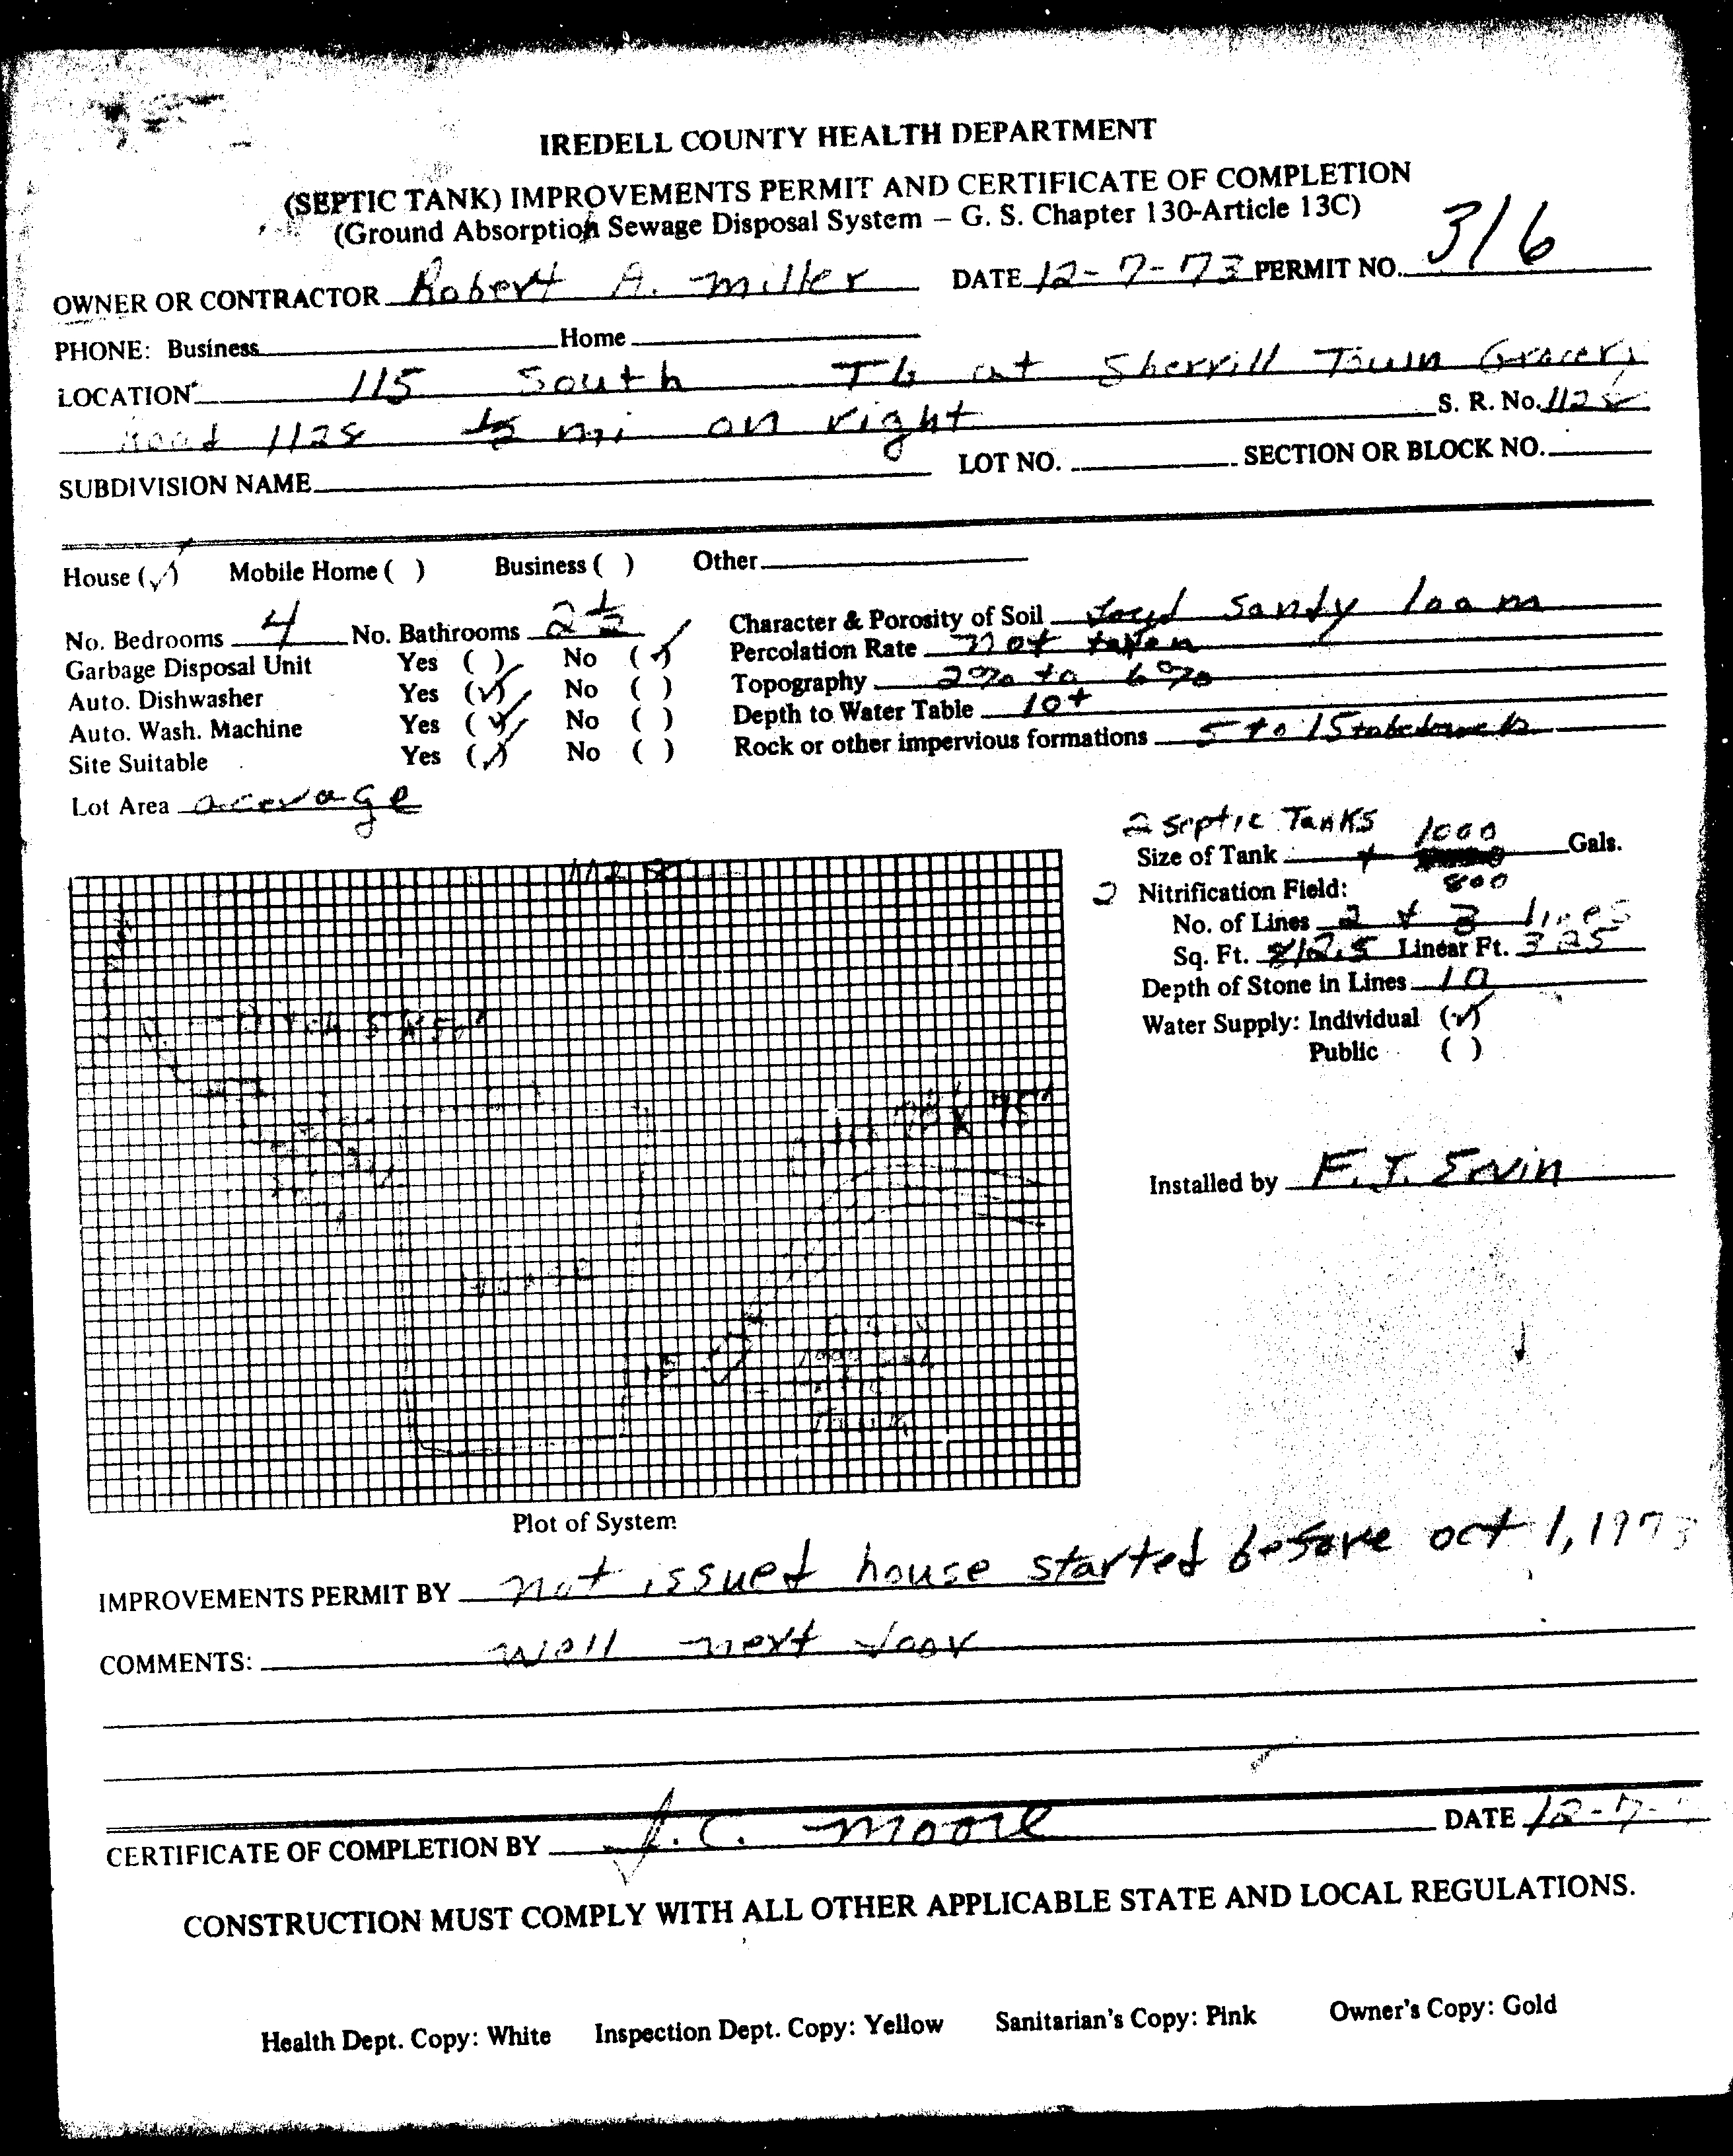 IREDELL COUNTY HEALTH DEPARTMENT
(SEPTIC TANK) IMPROVEMENTS PERMIT AND CERTIFICATE OF COMPLETION
(Ground Absorption Sewage Disposal System – G. S. Chapter 130-Article 13C)
OWNER OR CONTRACTOR Robert A. Miller DATE 12-7-73 PERMIT NO. 316
PHONE: Business Home
LOCATION 115 South TL at Sherrill Town Grocery
Road 1128 ½ mi on right S. R. No. 1128
SUBDIVISION NAME LOT NO. SECTION OR BLOCK NO.
House (✓) Mobile Home ( ) Business ( ) Other
No. Bedrooms 4 No. Bathrooms 2 ½ Character & Porosity of Soil good sandy loam
Garbage Disposal Unit Yes ( ) No (✓) Percolation Rate not taken
Auto. Dishwasher Yes (✓) No ( ) Topography 2% to 6%
Auto. Wash. Machine Yes (✓) No ( ) Depth to Water Table 10+
Site Suitable Yes (✓) No ( ) Rock or other impervious formations 5 to 15
Lot Area acerage
2 septic Tanks 1000
Size of Tank + Gals.
800
2 Nitrification Field:
No. of Lines 2 + 3 lines
Sq. Ft. 812.5 Linear Ft. 325
Depth of Stone in Lines 10
Water Supply: Individual (✓)
Public ( )
Installed by F. J. Ervin
1128
House
Plot of System
IMPROVEMENTS PERMIT BY not issued house started before oct 1, 1973
COMMENTS: well next door
CERTIFICATE OF COMPLETION BY J. C. Moore DATE 12-7-
CONSTRUCTION MUST COMPLY WITH ALL OTHER APPLICABLE STATE AND LOCAL REGULATIONS.
Health Dept. Copy: White Inspection Dept. Copy: Yellow Sanitarian's Copy: Pink Owner's Copy: Gold